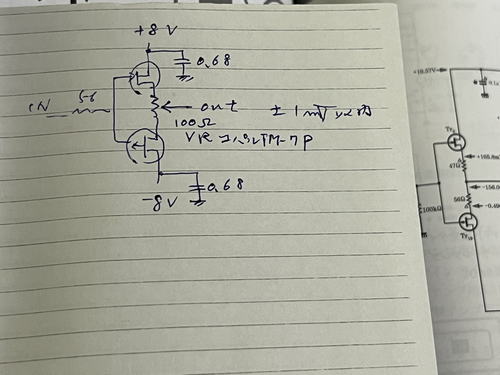 +8V
0.68
IN 56
out ±1mV以内
100Ω
VR コパル TM-7P
0.68
-8V
+10.57V
0.1μ
Tr₉
47Ω
+165.8m
-156.0
100kΩ
56Ω
-0.49
Tr₁₀